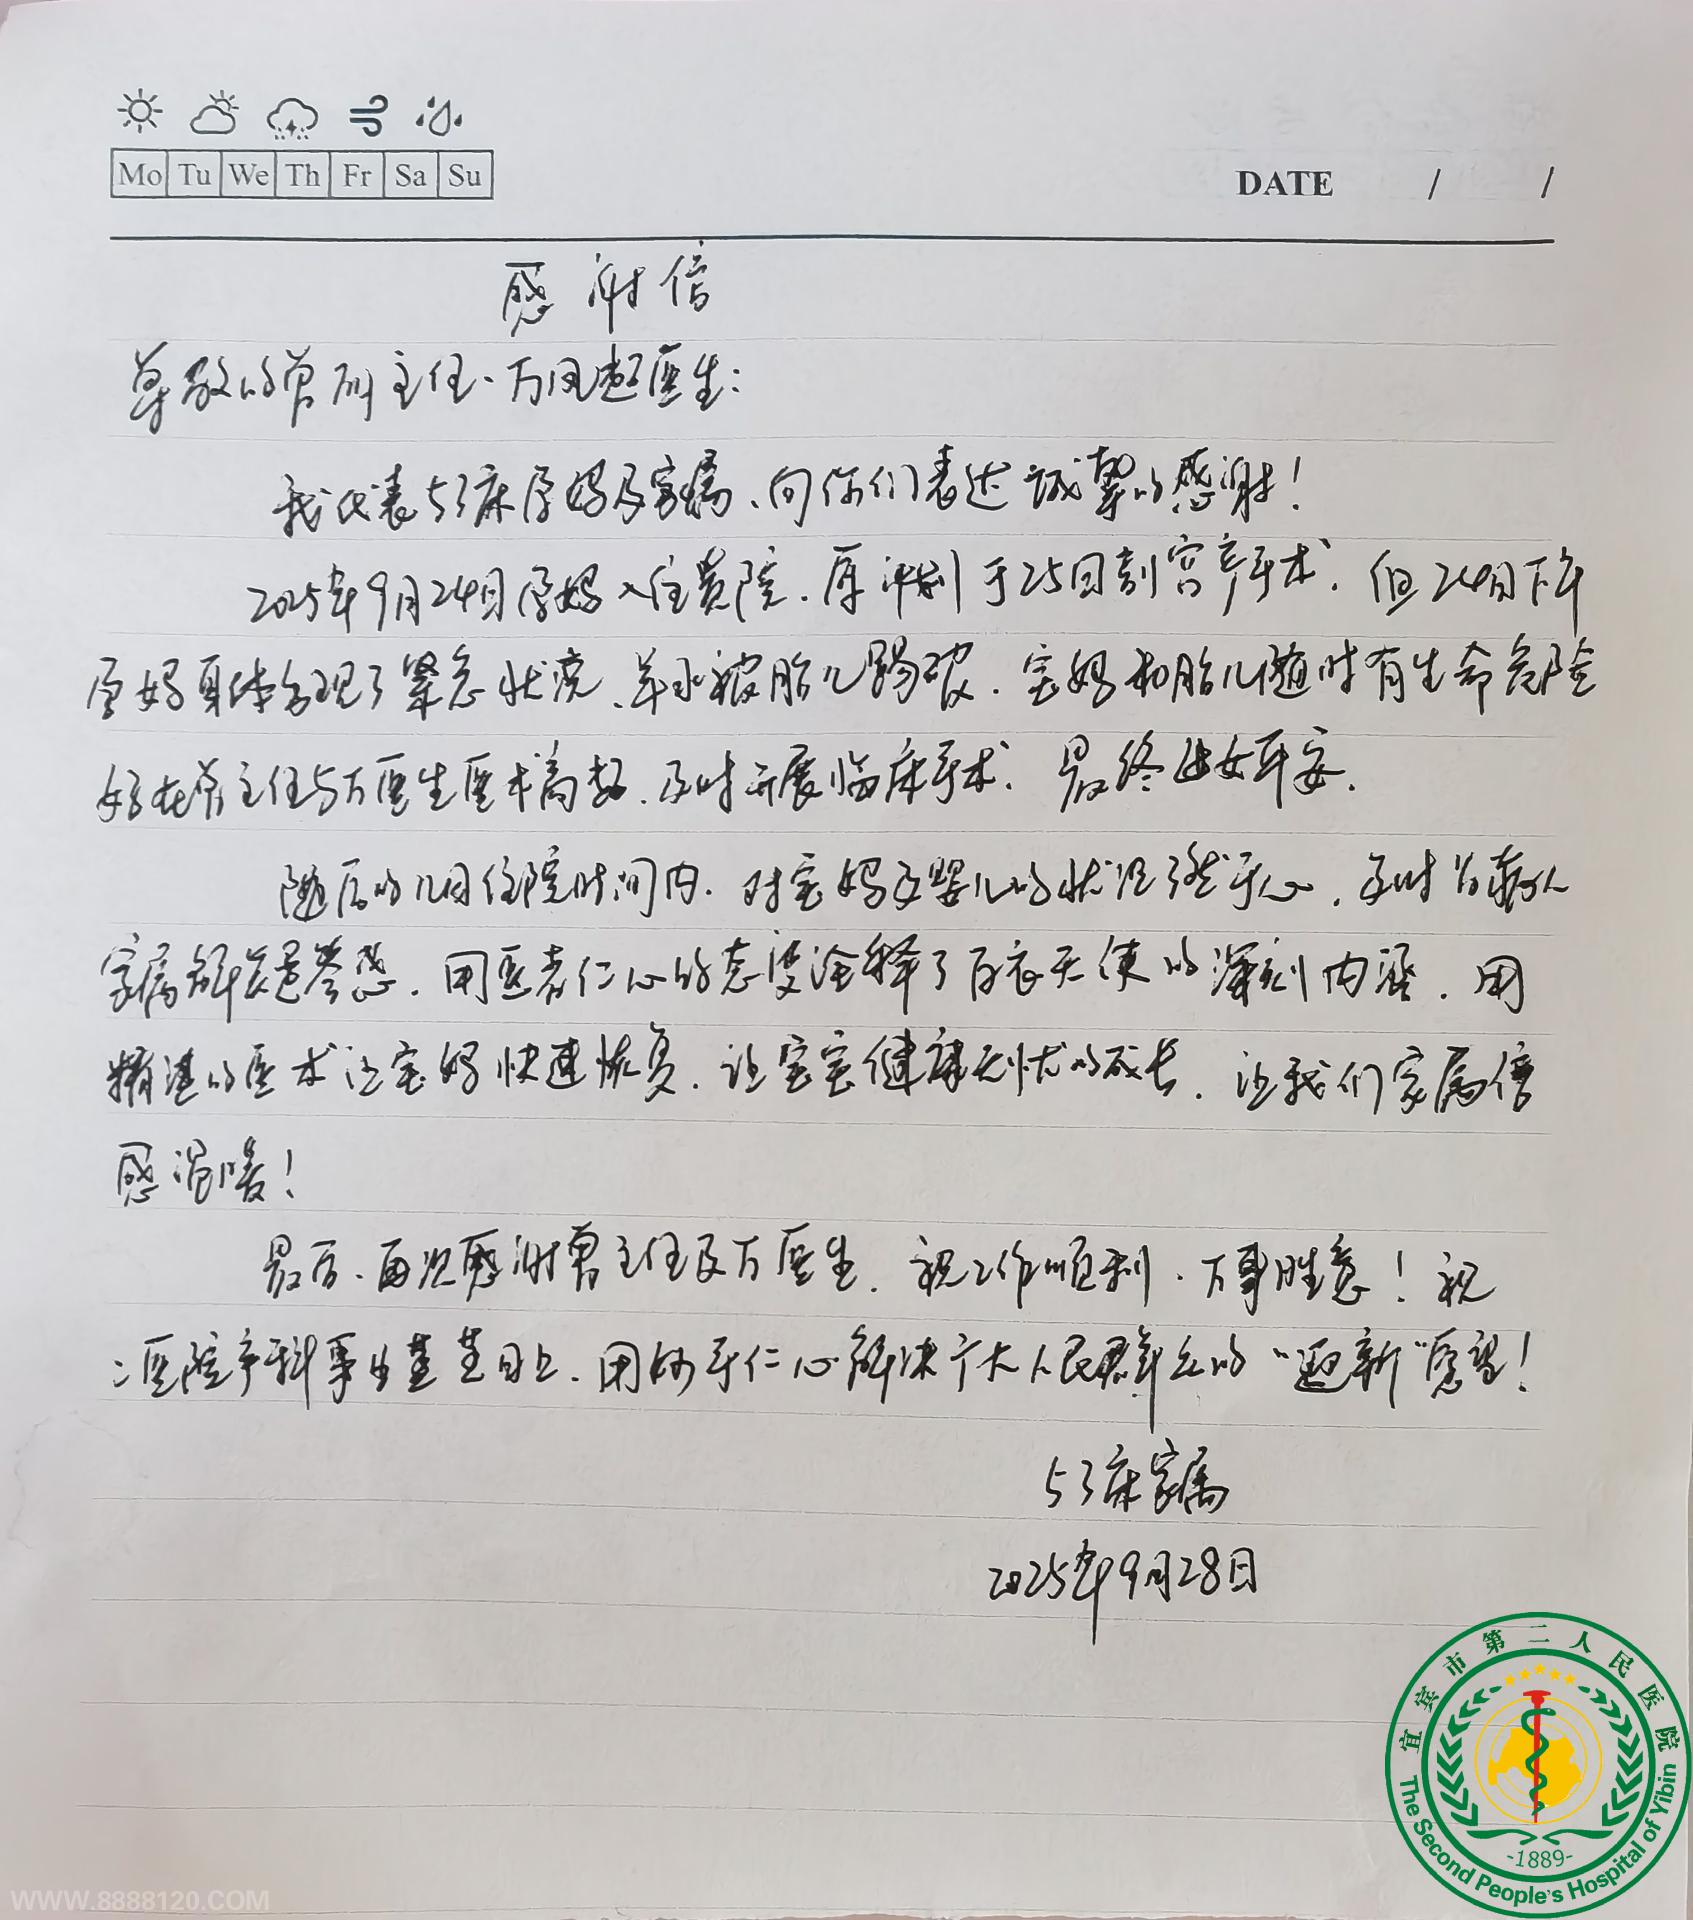 Mo Tu We Th Fr Sa Su
DATE / /
感谢信
尊敬的曾刚主任、万凤超医生:
我代表53床孕妈及家属、向你们表达诚挚的感谢!
2025年9月24日孕妈入住贵院.原计划于25日剖宫产手术.但24日下午
孕妈身体出现了紧急状况、羊水被胎儿踢破.宝妈和胎儿随时有生命危险
好在曾主任与万医生医术高超.及时开展临床手术.最终母女平安.
随后的几日住院时间内.对宝妈及婴儿的状况了然于心.及时为病人
家属解疑答惑.用医者仁心的态度诠释了白衣天使的深刻内涵.用
精湛的医术让宝妈快速恢复.让宝宝健康无忧的成长.让我们家属倍
感温暖!
最后.再次感谢曾主任及万医生.祝工作顺利.万事胜意!祝
二医院产科事业蒸蒸日上.用妙手仁心解决广大人民群众的“迎新”愿望!
53床家属
2025年9月28日
宜宾市第二人民医院
-1889-
The Second People's Hospital of Yibin
WWW.8888120.COM